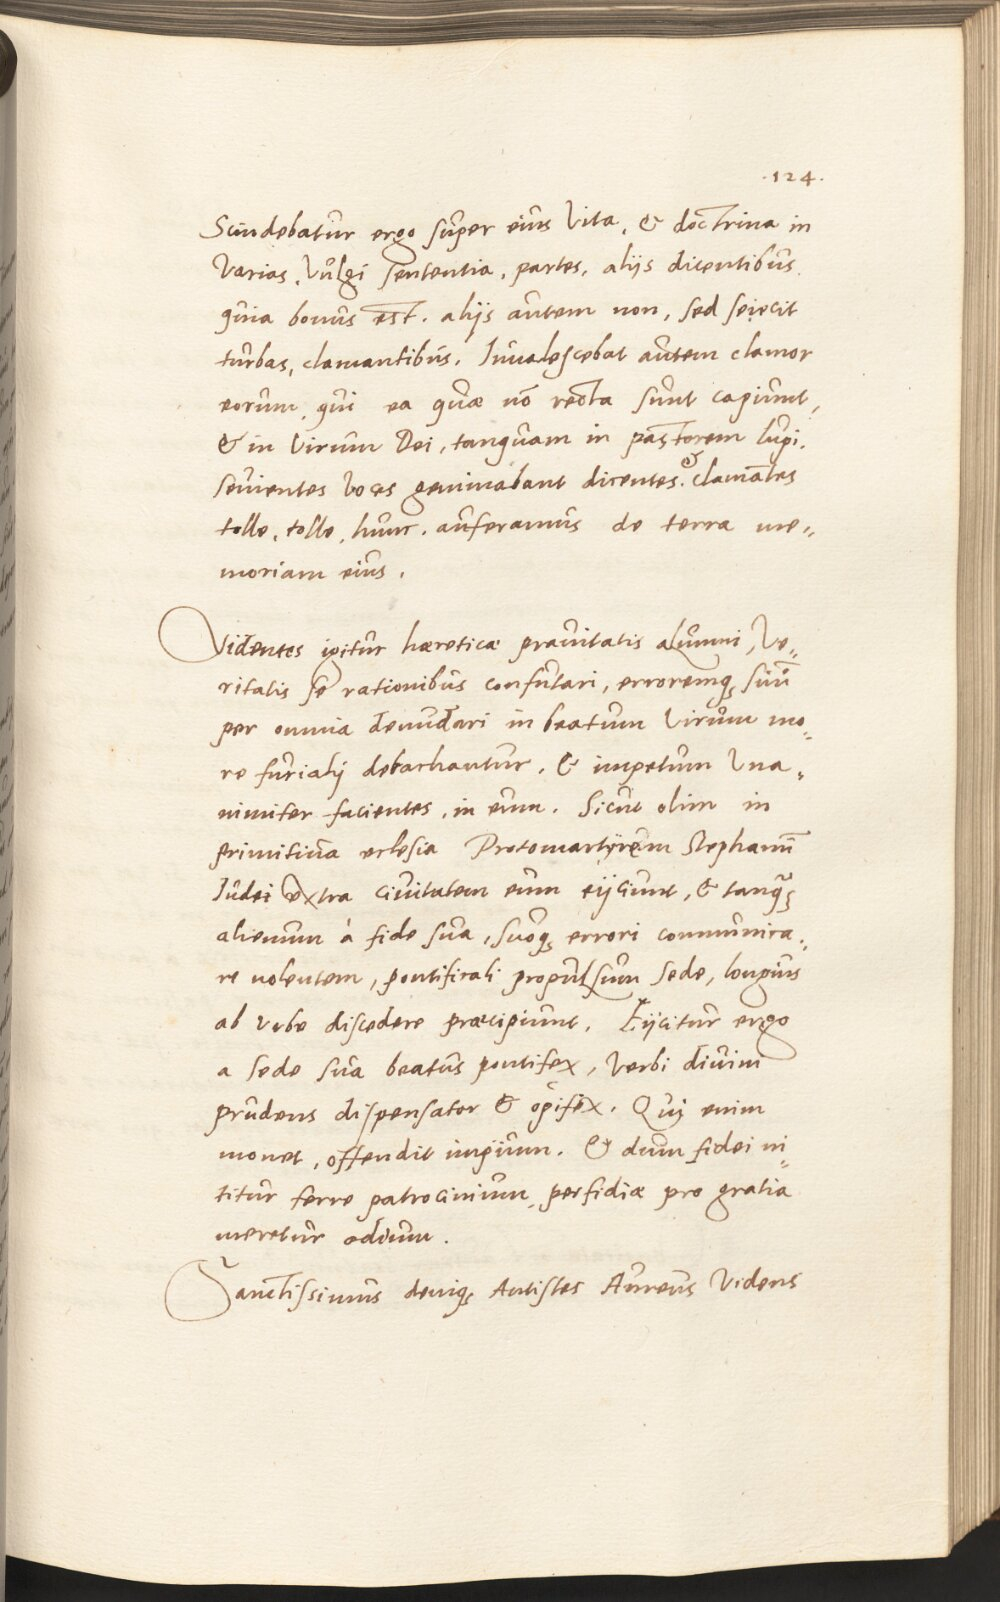 ·124·
Scindebatur ergo super eius Vita, & doctrina in
Varias, Vulgi sententia, partes, alijs dicentibus
quia bonus est. alijs autem non, sed seiecit
turbas, clamantibus. Inualescebat autem clamor
eorum, qui ea quæ nō recta sunt capiunt,
& in Virum Dei, tanquam in pastorem lupi,
seuientes Voces geminabant dicentes. & clamātes
tolle, tolle, hunc. auferamus de terra me,,
moriam eius.
Videntes igitur hæreticæ prauitatis alumni, Ve,,
ritatis se rationibus confutari, erroremq; suū
per omnia denudari in beatum Virum mo,,
re furialij debachantur, & impetum Vna,,
nimiter facientes, in eum. Sicut olim in
primitiua eclesia Protomartyrem Stephanū
Iudei extra ciuitatem eum eijciunt, & tanq̄;
alienum à fide sua, suoq; errori communica,,
re nolentem, pontificali propulsum sede, longius
ab Vrbe discedere præcipiunt. Eijcitur ergo
a sede sua beatus pontifex, Verbi diuini
prudens dispensator & opifex. Quj enim
monet, offendit impium. & dum fidei ni,,
titur ferre patrocinium, perfidiæ pro gratia
meretur odium.
Sanctissimus deniq; Antistes Aureus Videns